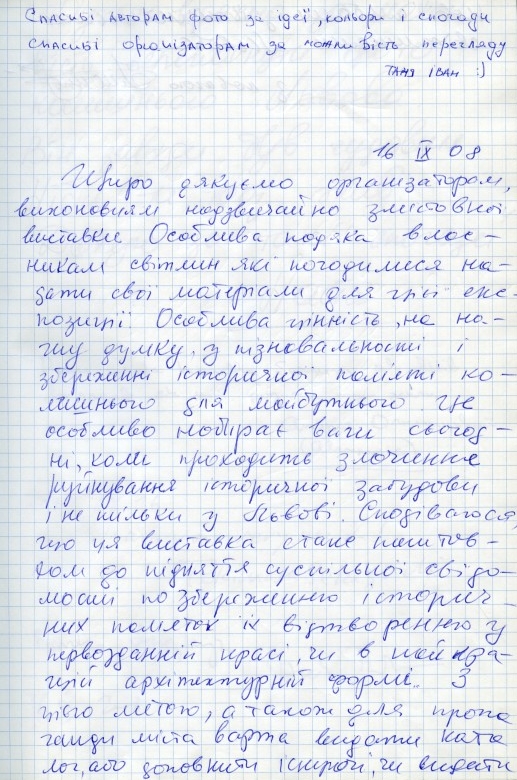 Спасибі авторам фото за ідеї, кольори і спогади
спасибі організаторам за можливість перегляду
Таня Іван :)
16 IX 08
Щиро дякуємо організаторам,
виконавцям надзвичайно змістовної
виставки. Особлива подяка влас-
никам світлин які погодилися на-
дати свої матеріали для цієї екс-
позиції. Особлива цінність, на на-
шу думку, у пізнавальності і
збереженні історичної памяті ко-
лишнього для майбутнього. Це
особливо набирає ваги сьогод-
ні, коли проходить злочинне
руйнування історичної забудови
і не тільки у Львові. Сподіваюся,
що ця виставка стане поштов-
хом до підняття суспільної свідо-
мості по збереженню історич-
них памяток їх відтворенню у
первозданній красі, чи в найкра-
щій архітектурній формі. З
цією метою, а також для пропа
ганди міста варта видати ката
лог, або доповнити існуючі чи видати